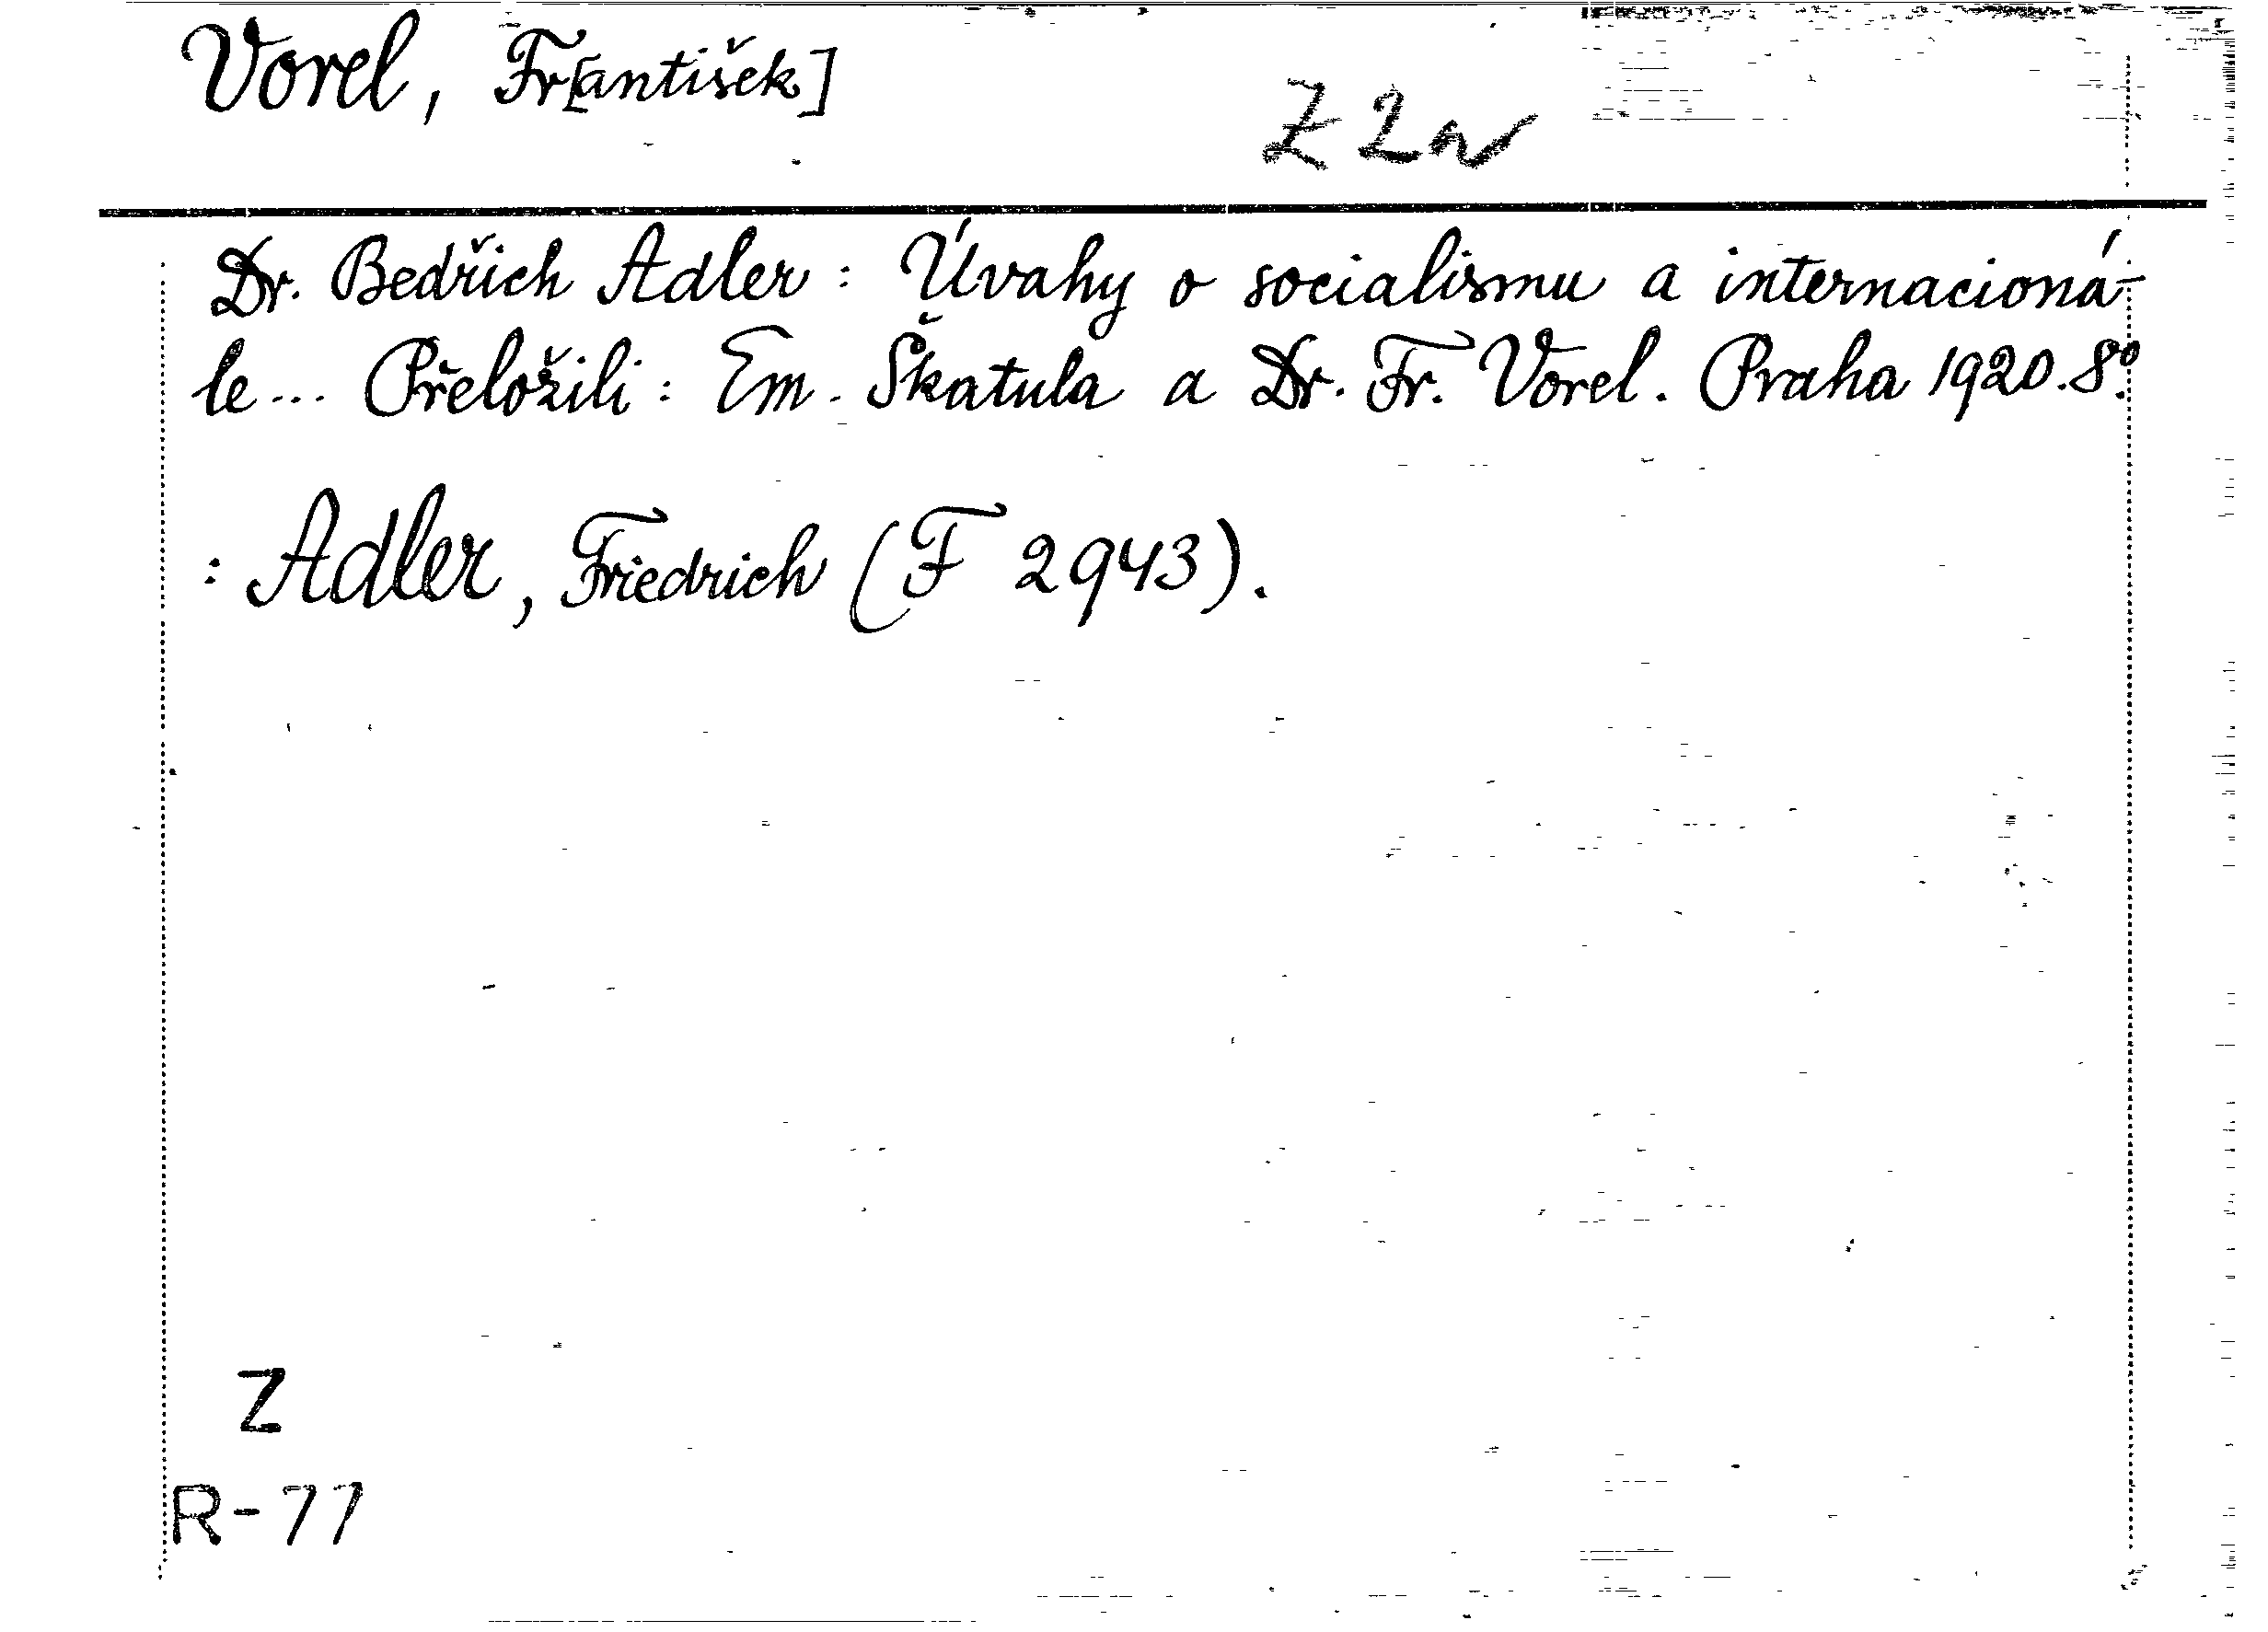 Vorel, Fr[antišek]
Z 2a
Dr. Bedřich Adler: Úvahy o socialismu a internacioná-
le... Přeložili: Em. Škatula a Dr. Fr. Vorel. Praha 1920. 8º.
: Adler, Friedrich (F 2943).
Z
R-77